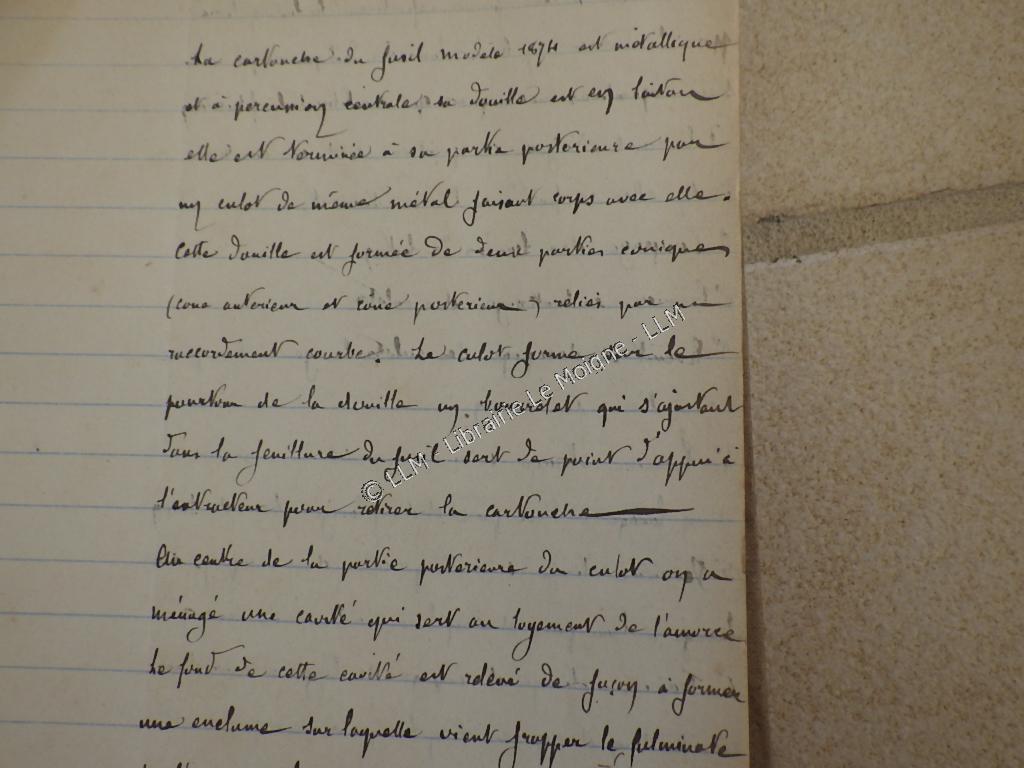 La cartouche du fusil modèle 1874 est métallique
et à percussion centrale. sa douille est en laiton
elle est terminée à sa partie posterieure par
un culot de même métal faisant corps avec elle.
Cette douille est formée de deux parties coniques
(cone anterieur et cone posterieur) reliés par un
raccordement courbe. Le culot forme sur le
pourtour de la douille un bourrelet qui s'ajustant
dans la feuillure du fusil sert de point d'appui à
l'extracteur pour retirer la cartouche
Au centre de la partie posterieure du culot on a
ménagé une cavité qui sert au logement de l'amorce
Le fond de cette cavité est relevé de façon à former
une enclume sur laquelle vient frapper le fulminate
© LLM - Librairie Le Moigne - LLM